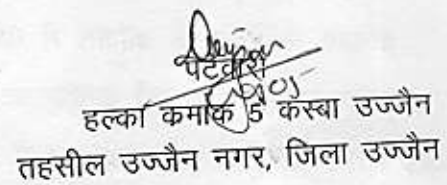 पटवारी
हल्का कमांक 5 कस्बा उज्जैन
तहसील उज्जैन नगर, जिला उज्जैन